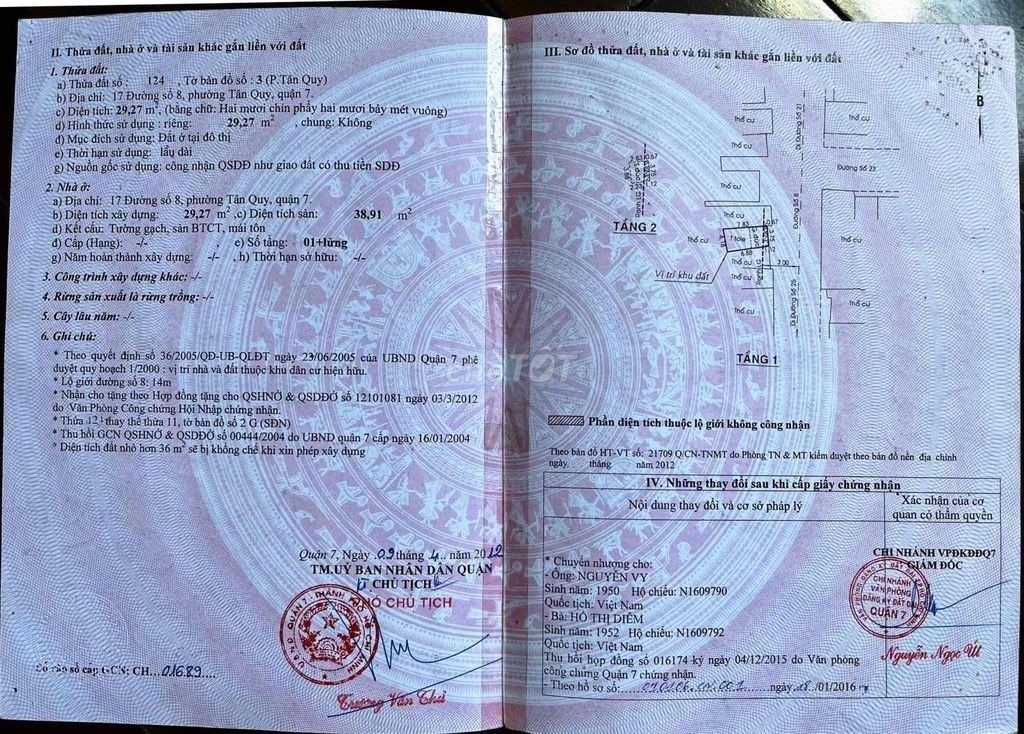 II. Thửa đất, nhà ở và tài sản khác gắn liền với đất
1. Thửa đất:
a) Thửa đất số : 124 , Tờ bản đồ số : 3 (P.Tân Quy)
b) Địa chỉ: 17 Đường số 8, phường Tân Quy, quận 7.
c) Diện tích: 29,27 m², (bằng chữ: Hai mươi chín phẩy hai mươi bảy mét vuông)
d) Hình thức sử dụng : riêng: 29,27 m² , chung: Không
đ) Mục đích sử dụng: Đất ở tại đô thị
e) Thời hạn sử dụng: lâu dài
g) Nguồn gốc sử dụng: công nhận QSDĐ như giao đất có thu tiền SDĐ
2. Nhà ở:
a) Địa chỉ: 17 Đường số 8, phường Tân Quy, quận 7.
b) Diện tích xây dựng: 29,27 m² ,c) Diện tích sàn: 38,91 m²
d) Kết cấu: Tường gạch, sàn BTCT, mái tôn
đ) Cấp (Hạng): -/- , e) Số tầng: 01+lửng
g) Năm hoàn thành xây dựng: -/- , h) Thời hạn sở hữu: -/-
3. Công trình xây dựng khác: -/-
4. Rừng sản xuất là rừng trồng: -/-
5. Cây lâu năm: -/-
6. Ghi chú:
* Theo quyết định số 36/2005/QĐ-UB-QLĐT ngày 23/06/2005 của UBND Quận 7 phê
duyệt quy hoạch 1/2000 : vị trí nhà và đất thuộc khu dân cư hiện hữu.
* Lộ giới đường số 8: 14m
* Nhận cho tặng theo Hợp đồng tặng cho QSHNỞ & QSDĐỞ số 12101081 ngày 03/3/2012
do Văn Phòng Công chứng Hội Nhập chứng nhận.
* Thửa thay thế thửa 11, tờ bản đồ số 2 G (SĐN)
* Thu hồi GCN QSHNỞ & QSDĐỞ số 00444/2004 do UBND quận 7 cấp ngày 16/01/2004
* Diện tích đất nhỏ hơn 36 m² sẽ bị không chế khi xin phép xây dựng
Quận 7, Ngày 09 tháng 4 năm 2012
TM.UỶ BAN NHÂN DÂN QUẬN
KT CHỦ TỊCH
PHÓ CHỦ TỊCH
QUẬN 7 - THÀNH PHỐ HỒ CHÍ MINH
Số vào sổ cấp GCN: CH...01689....
Trương Văn Thư
III. Sơ đồ thửa đất, nhà ở và tài sản khác gắn liền với đất
B
Thổ cư
Thổ cư
Thổ cư
Thổ cư
Thổ cư
Thổ cư
Thổ cư
Thổ cư
Thổ cư
Đi Đường Số 21
Đường Số 23
Đường Số 8
Đi Đường Số 25
2.83
0.67
3.75
7.83
6.88
7.00
1 tầng
Ranh LG
Ranh LG
TẦNG 2
Vị trí khu đất
TẦNG 1
Phần diện tích thuộc lộ giới không công nhận
Theo bản đồ HT-VT số: 21709 Q/CN-TNMT do Phòng TN & MT kiểm duyệt theo bản đồ nền địa chính
ngày tháng năm 2012
IV. Những thay đổi sau khi cấp giấy chứng nhận
Nội dung thay đổi và cơ sở pháp lý
Xác nhận của cơ
quan có thẩm quyền
* Chuyển nhượng cho:
- Ông: NGUYỄN VY
Sinh năm: 1950 Hộ chiếu: N1609790
Quốc tịch: Việt Nam
- Bà: HỒ THỊ DIỄM
Sinh năm: 1952 Hộ chiếu: N1609792
Quốc tịch: Việt Nam
Thu hồi hợp đồng số 016174 ký ngày 04/12/2015 do Văn phòng
công chứng Quận 7 chứng nhận.
- Theo hồ sơ số: 070106.CN.001 ngày 18/01/2016
CHI NHÁNH VPĐKĐĐQ7
GIÁM ĐỐC
CHI NHÁNH
VĂN PHÒNG
ĐĂNG KÝ ĐẤT ĐAI
QUẬN 7
Nguyễn Ngọc Út
CHỢ TỐT